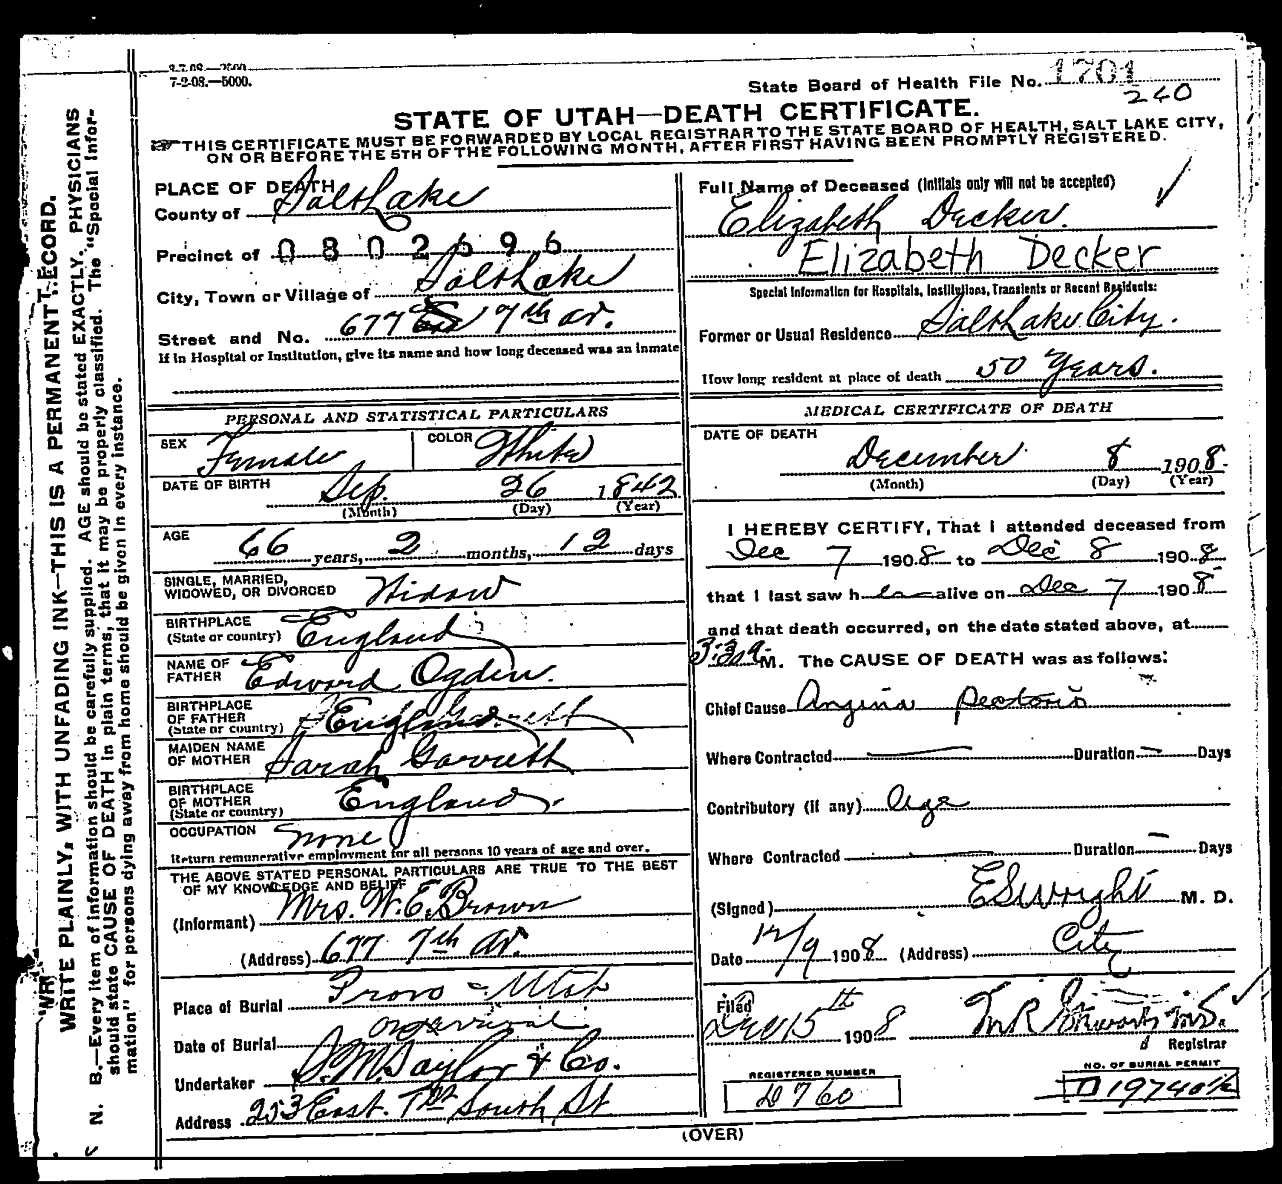 7-2-08.—5000.
State Board of Health File No. 1701
240
STATE OF UTAH—DEATH CERTIFICATE.
THIS CERTIFICATE MUST BE FORWARDED BY LOCAL REGISTRAR TO THE STATE BOARD OF HEALTH, SALT LAKE CITY,
ON OR BEFORE THE 5TH OF THE FOLLOWING MONTH, AFTER FIRST HAVING BEEN PROMPTLY REGISTERED.
WRITE PLAINLY, WITH UNFADING INK—THIS IS A PERMANENT RECORD.
N. B.—Every item of information should be carefully supplied. AGE should be stated EXACTLY. PHYSICIANS
should state CAUSE OF DEATH in plain terms, that it may be properly classified. The "Special Infor-
mation" for persons dying away from home should be given in every instance.
PLACE OF DEATH
County of Salt Lake
Precinct of 0802696
City, Town or Village of Salt Lake
Street and No. 677 7th av.
If in Hospital or Institution, give its name and how long deceased was an inmate
PERSONAL AND STATISTICAL PARTICULARS
SEX Female COLOR White
DATE OF BIRTH Sep. 26 1842
(Month) (Day) (Year)
AGE 66 years, 2 months, 12 days
SINGLE, MARRIED,
WIDOWED, OR DIVORCED Widow
BIRTHPLACE
(State or country) England
NAME OF
FATHER Edward Ogden.
BIRTHPLACE
OF FATHER
(State or country) England
MAIDEN NAME
OF MOTHER Sarah Garrett
BIRTHPLACE
OF MOTHER
(State or country) England.
OCCUPATION none
Return remunerative employment for all persons 10 years of age and over.
THE ABOVE STATED PERSONAL PARTICULARS ARE TRUE TO THE BEST
OF MY KNOWLEDGE AND BELIEF
(Informant) Mrs. W. E. Brown
(Address) 677 7th Av.
Place of Burial Provo - Utah
Date of Burial on arrival
Undertaker S. M. Taylor & Co.
Address 253 East. 1st South St
Full Name of Deceased (Initials only will not be accepted)
Elizabeth Decker.
Elizabeth Decker
Special Information for Hospitals, Institutions, Transients or Recent Residents:
Former or Usual Residence Salt Lake City.
How long resident at place of death 50 Years.
MEDICAL CERTIFICATE OF DEATH
DATE OF DEATH
December 8 1908.
(Month) (Day) (Year)
I HEREBY CERTIFY, That I attended deceased from
Dec 7 1908 to Dec 8 1908
that I last saw h alive on Dec 7 1908
and that death occurred, on the date stated above, at
3:30 a M. The CAUSE OF DEATH was as follows:
Chief Cause Angina Pectoris
Where Contracted — Duration — Days
Contributory (if any) Age
Where Contracted — Duration — Days
(Signed) E S Wright M. D.
Date 12/9 1908 (Address) City
Filed
Dec 15th 1908
Registrar
REGISTERED NUMBER
D760
NO. OF BURIAL PERMIT
D 19740½
(OVER)